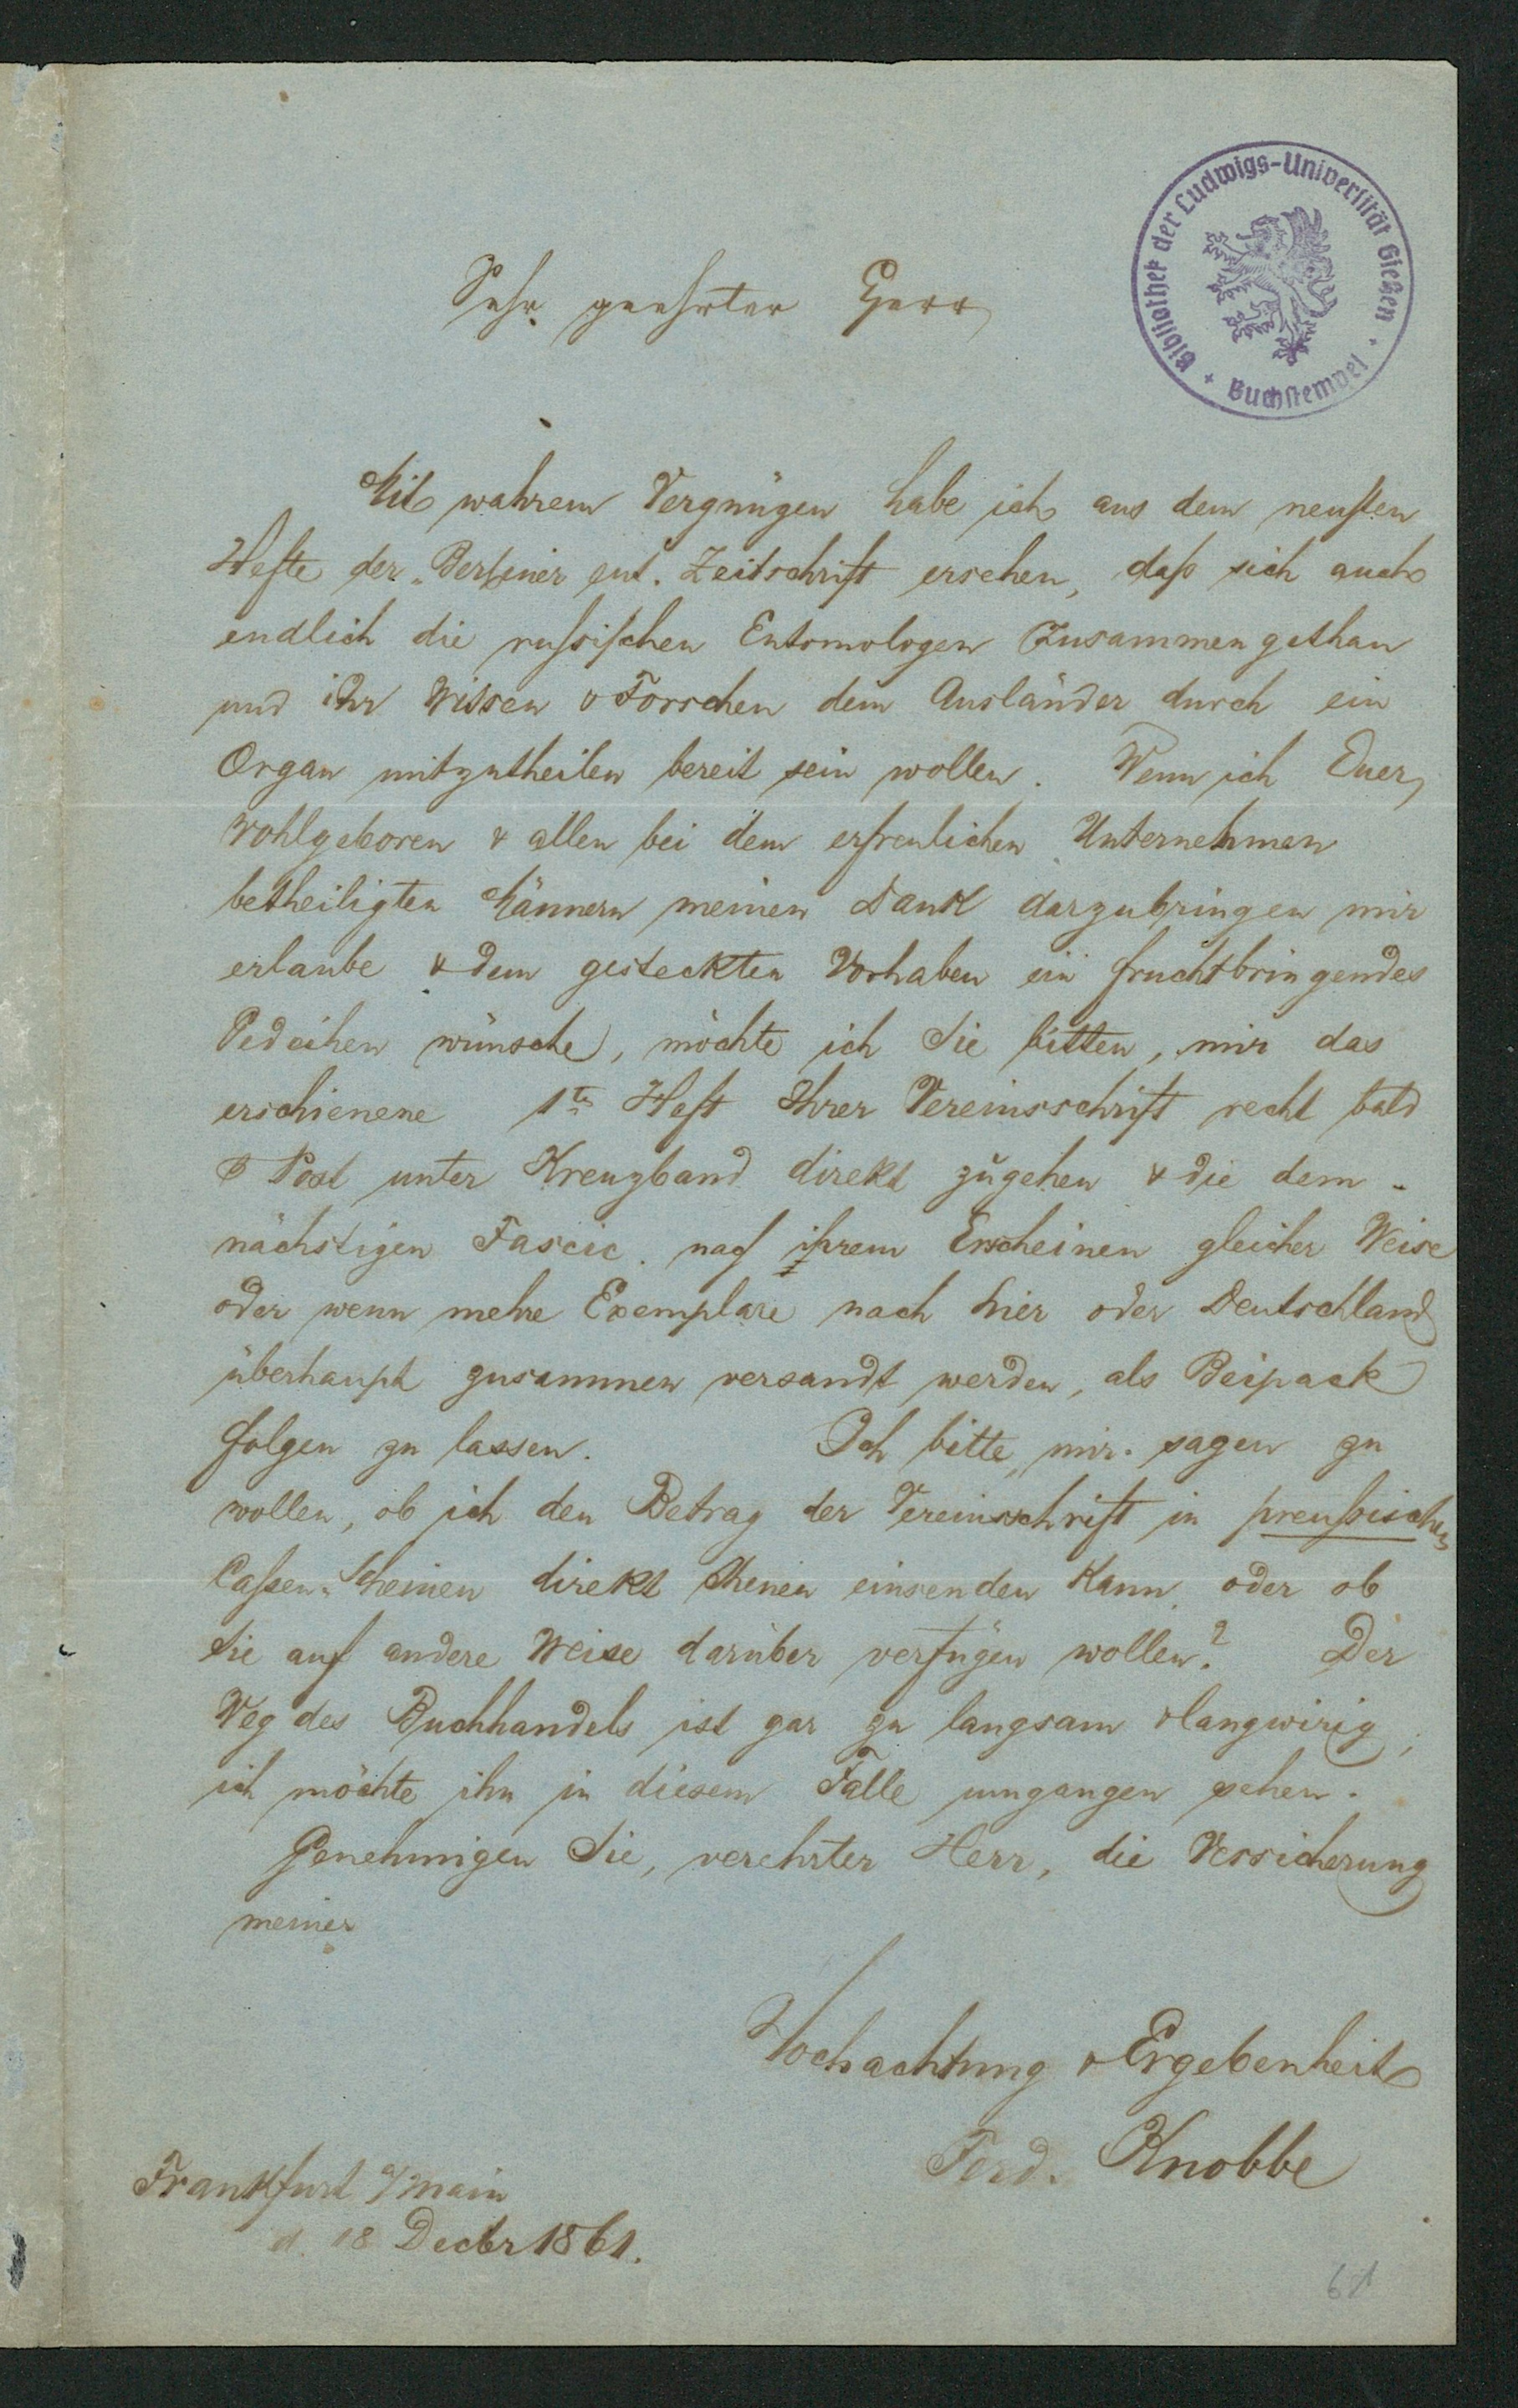 Bibliothek der Ludwigs-Universität Gießen
Buchstempel
Sehr geehrter Herr
Mit wahrem Vergnügen habe ich aus dem neusten
Hefte der „Berliner ent. Zeitschrift ersehen, daß sich auch
endlich die russischen Entomologen zusammengethan
und ihr Wissen & Forschen dem Ausländer durch ein
Organ mitzutheilen bereit sein wollen. Wenn ich Euer
Wohlgeboren & allen bei dem erfreulichen Unternehmen
betheiligten Männern meinen Dank darzubringen mir
erlaube & dem gesteckten Vorhaben ein fruchtbringendes
Gedeihen wünsche, möchte ich Sie bitten, mir das
erschienene 1te Heft Ihrer Vereinsschrift recht bald
Post unter Kreuzband direkt zugehen & die dem-
nächstigen Fascic. nach ihrem Erscheinen gleicher Weise
oder wenn mehre Exemplare nach hier oder Deutschland
überhaupt zusammen versandt werden, als Beipack
folgen zu lassen. Ich bitte, mir sagen zu
wollen, ob ich den Betrag der Vereinsschrift in preußischen
Cassen-Scheinen direkt Ihnen einsenden kann oder ob
Sie auf andere Weise darüber verfügen wollen? Der
Weg des Buchhandels ist gar zu langsam & langwirig,
ich möchte ihn in diesem Falle umgangen sehen.
Genehmigen Sie, verehrter Herr, die Versicherung
meiner
Hochachtung & Ergebenheit
Ferd. Knobbe
Frankfurt a/Main
d. 18 Decbr 1861.
61